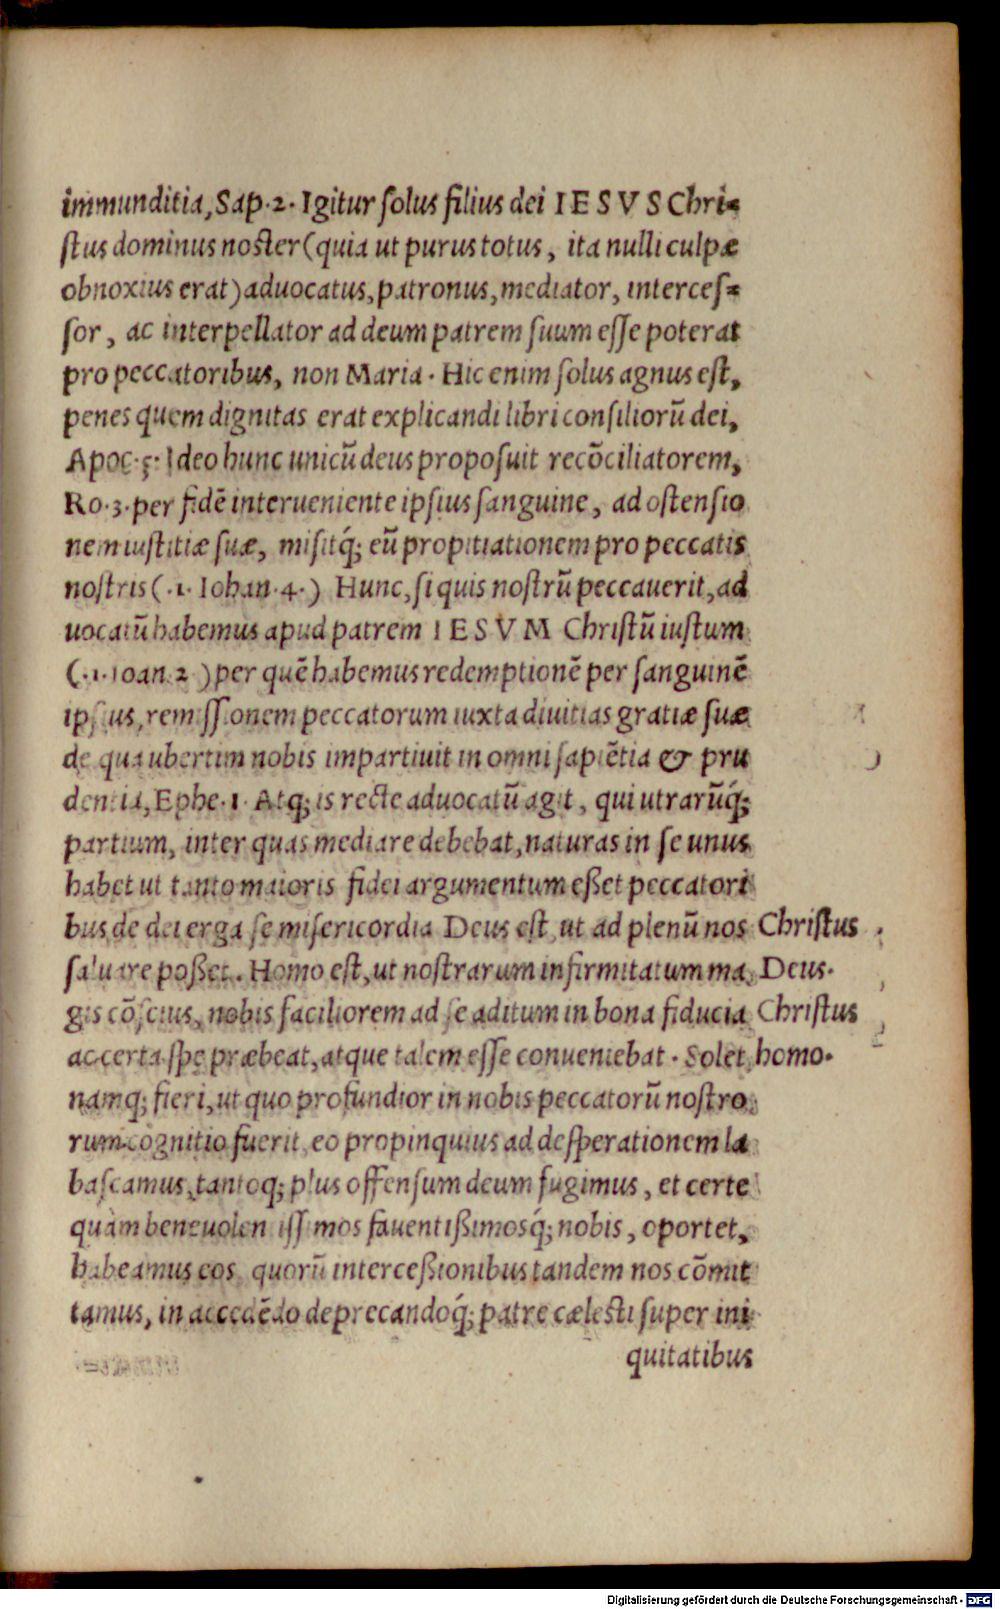 immunditia, Sap·2· Igitur ſolus filius dei IESVS Chri=
ſtus dominus noſter (quia ut purus totus, ita nulli culpæ
obnoxius erat) aduocatus, patronus, mediator, interceſ=
ſor, ac interpellator ad deum patrem ſuum eſſe poterat
pro peccatoribus, non Maria· Hic enim ſolus agnus eſt,
penes quem dignitas erat explicandi libri conſiliorū dei,
Apoc·5· Ideo hunc unicū deus propoſuit recōciliatorem,
Ro·3· per fidē interueniente ipſius ſanguine, ad oſtenſio
nem iuſtitiæ ſuæ, miſitq́; eū propitiationem pro peccatis
noſtris (·1· Iohan·4·) Hunc, ſi quis noſtrū peccauerit, ad
uocatū habemus apud patrem IESVM Chriſtū iuſtum
(·1· Ioan 2·) per quē habemus redemptionē per ſanguinē
ipſius, remiſſionem peccatorum iuxta diuitias gratiæ ſuæ
de qua ubertim nobis impartiuit in omni ſapiētia & pru
dentia, Ephe·1· Atq; is recte aduocatū agit, qui utrarūq́;
partium, inter quas mediare debebat, naturas in ſe unus
habet ut tanto maioris fidei argumentum eßet peccatori
bus de dei erga ſe miſericordia Deus eſt, ut ad plenū nos
ſaluare poßet· Homo eſt, ut noſtrarum infirmitatum ma
gis cōſcius, nobis faciliorem ad ſe aditum in bona fiducia
ac certa ſpe præbeat, atque talem eſſe conueniebat· Solet
namq; fieri, ut quo profundior in nobis peccatorū noſtro
rum cognitio fuerit, eo propinquius ad deſperationem la
baſcamus, tantoq; plus offenſum deum fugimus, et certe
quàm beneuolentiſſimos fauentißimosq́; nobis, oportet,
habeamus eos, quorū interceßionibus tandem nos cōmit
tamus, in accedēdo deprecandoq́; patre cæleſti ſuper ini
quitatibus
Chriſtus
Deus·
Chriſtus
homo·
Digitalisierung gefördert durch die Deutsche Forschungsgemeinschaft - DFG